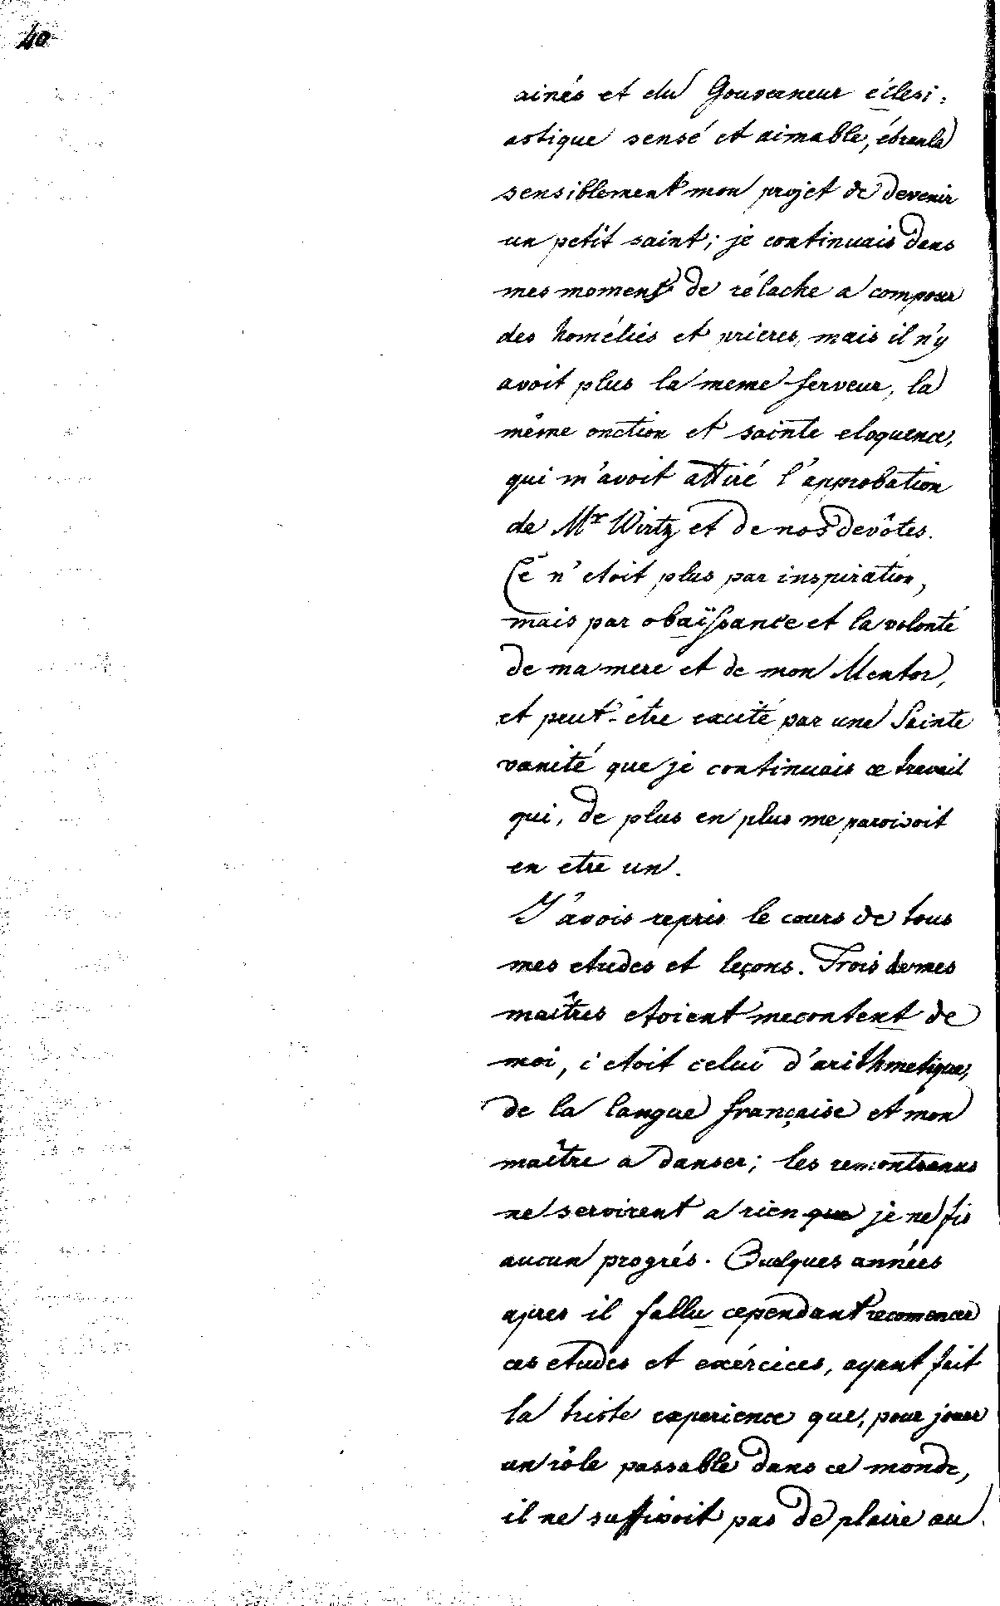 40
ainés et du Gouverneur éclesi:
astique sensé et aimable, ébranla
sensiblement mon projet de devenir
un petit saint; je continuais dans
mes moments de rélache a composer
des homélies et prieres, mais il n'y
avoit plus la meme ferveur, la
même onction et sainte eloquence,
qui m'avoit attiré l'approbation
de Mr Wirtz et de nos devôtes.
Ce n'etoit plus par inspiration,
mais par obaïssance et la volonté
de ma mere et de mon Mentor,
et peut-être excité par une Sainte
vanité que je continuais ce travail
qui, de plus en plus me paroisoit
en etre un.
J'avois repris le cours de tous
mes etudes et leçons. Trois de mes
maîtres etoient mecontent de
moi, c'etoit celui d'arithmetique,
de la langue française et mon
maître a danser; les remontrances
ne servirent a rien que je ne fis
aucun progrés. Quelques années
apres il fallu cependant recomencer
ces etudes et exércices, ayant fait
la triste experience que, pour jouer
un rôle passable dans ce monde,
il ne suffisoit pas de plaire au